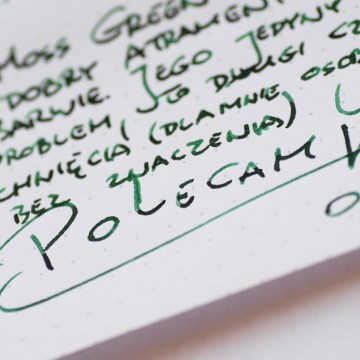 Moss Green
dobry atrament
barwie. Jego jedyny
problem to długi cz
chnięcia (dla mnie osob
bez znaczenia)
Polecam